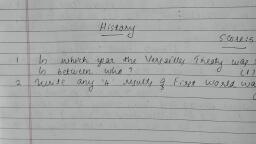 History
Score:5
1 In which year the Versailles Treaty was
In between who? (1)
2 Write any '4' results of First World Wa